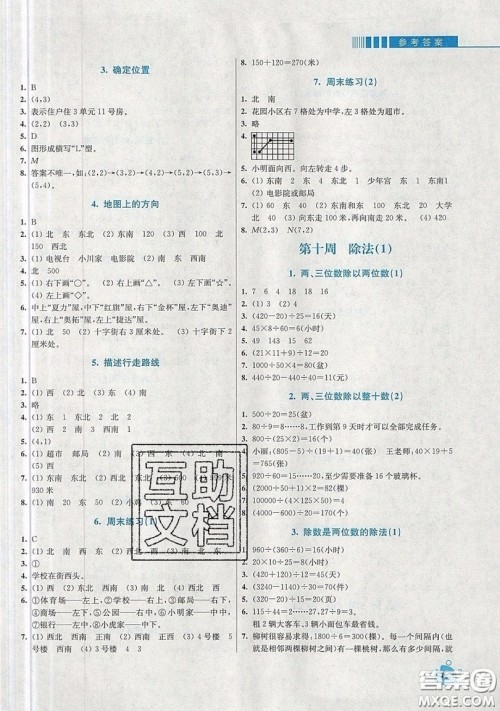 参考答案
3. 确定位置
1. B
2. (4,3)
3. 表示住户住3单元11号房。
4. (2,2) (3,3)
5. D
6. 图形成横写“L”型。
7. M
8. 答案不唯一,如:(2,2)→(3,2)→(4,2)→(5,2)→(5,3)→
(5,4)。
4. 地图上的方向
1. B
2. (1)北 东 东北 (2)东南 120 (3)西 100 北
150 西北
3. (1)电视台 小川家 电影院 (2)东南 (3)西南
4. 北 500
5. (1)右下画“○”。 (2)右上画“△”。 (3)左下画“☆”。
(4)左上画“◇”。
6. 中上“夏力”屋,中下“红旗”屋,右下“金杯”屋,左下“奥迪”
屋,右上“奥拓”屋,左上“捷达”屋。
7. (1)北 50 (2)十字街右3厘米处。 (3)十字街左下2厘
米处。
5. 描述行走路线
1. B
2. (1)西 (2)北 (3)东 (4)南
3. 略
4. (1)东 (2)东 北 东北 2 2
5. (4,1)
6. (1)超市 邮局 (2)南 (3)西
7. (1)西北 东
930米
8. (1)南 20 东 50 (2)小韩
6. 周末练习(1)
1. C
2. (1)北 南 西 东 (2)北 西
3. ①
4. 学校在街西头。
6. ①体育场——左上, ②学校——右上, ③电影院——
左下, ④商场——左下, ⑤公园——右中, ⑥小明家——中下,
⑦银行——左中, ⑧小虎家——中下。
7. (1)西北 西南 (2)正南 西北 正西 (3)4号楼 5
号楼 (4)南 南 西北 4号楼
8. 150+120=270(米)
7. 周末练习(2)
1. 北 南
2. 花园小区右7格处为中学,左3格处为超市。
3. 略
4.
5. 小明面向西。向左转走4步。
6. (1)东南 东北 东北 1 北 少年宫 东 1 东南
1 (2)电影院或邮局
7. (1)东 东北 和田 100 东南 北东南 60 大学
北 40 (2)先向东走100米,再向南走20米。
8. M(2,3) N(7,2)
第十周 除法(1)
1. 两、三位数除以两位数(1)
1. 7 6 4 18 18 16
3. (420-20)÷25=16(袋)
4. 40×8÷5÷8=8(小时)
5. 49 143 15 62
6. (21×11+9)÷12=20
7. (660-60)÷50=12(天)
8. 440÷20-40÷11=11(套)
2. 两、三位数除以整十数(2)
1. 500÷20=25(盆)
2. 80÷9=8……8。工作到第9天时才可以全部完成工作。
4. 小丽:(515-15)÷(40+10)=40(张) 王老师:40×20-35
=765(张)
5. 215÷16=13……7,至少需要准备16个玻璃杯。
6. (440-40)÷40=10(套)
7. 640÷20-640÷40=16(元)
3. 除数是两位数的除法(1)
1. 960÷(360÷6)=16(小时)
3. (320-20)÷25=12(颗)
4. (3240-1140)÷30=70(件)
5. (420+20)÷(20+2)=20
6. 110÷4=27……2,27÷9=3。
租2辆大客车,3辆小面包车最省钱。
7. 柳树很容易求得,1800÷6=300(棵)。每一个间隔内(也
就是相邻两棵柳树之间)有一棵桃树,那么有多少间隔,就
互助文档
答案圈
MXQE.COM